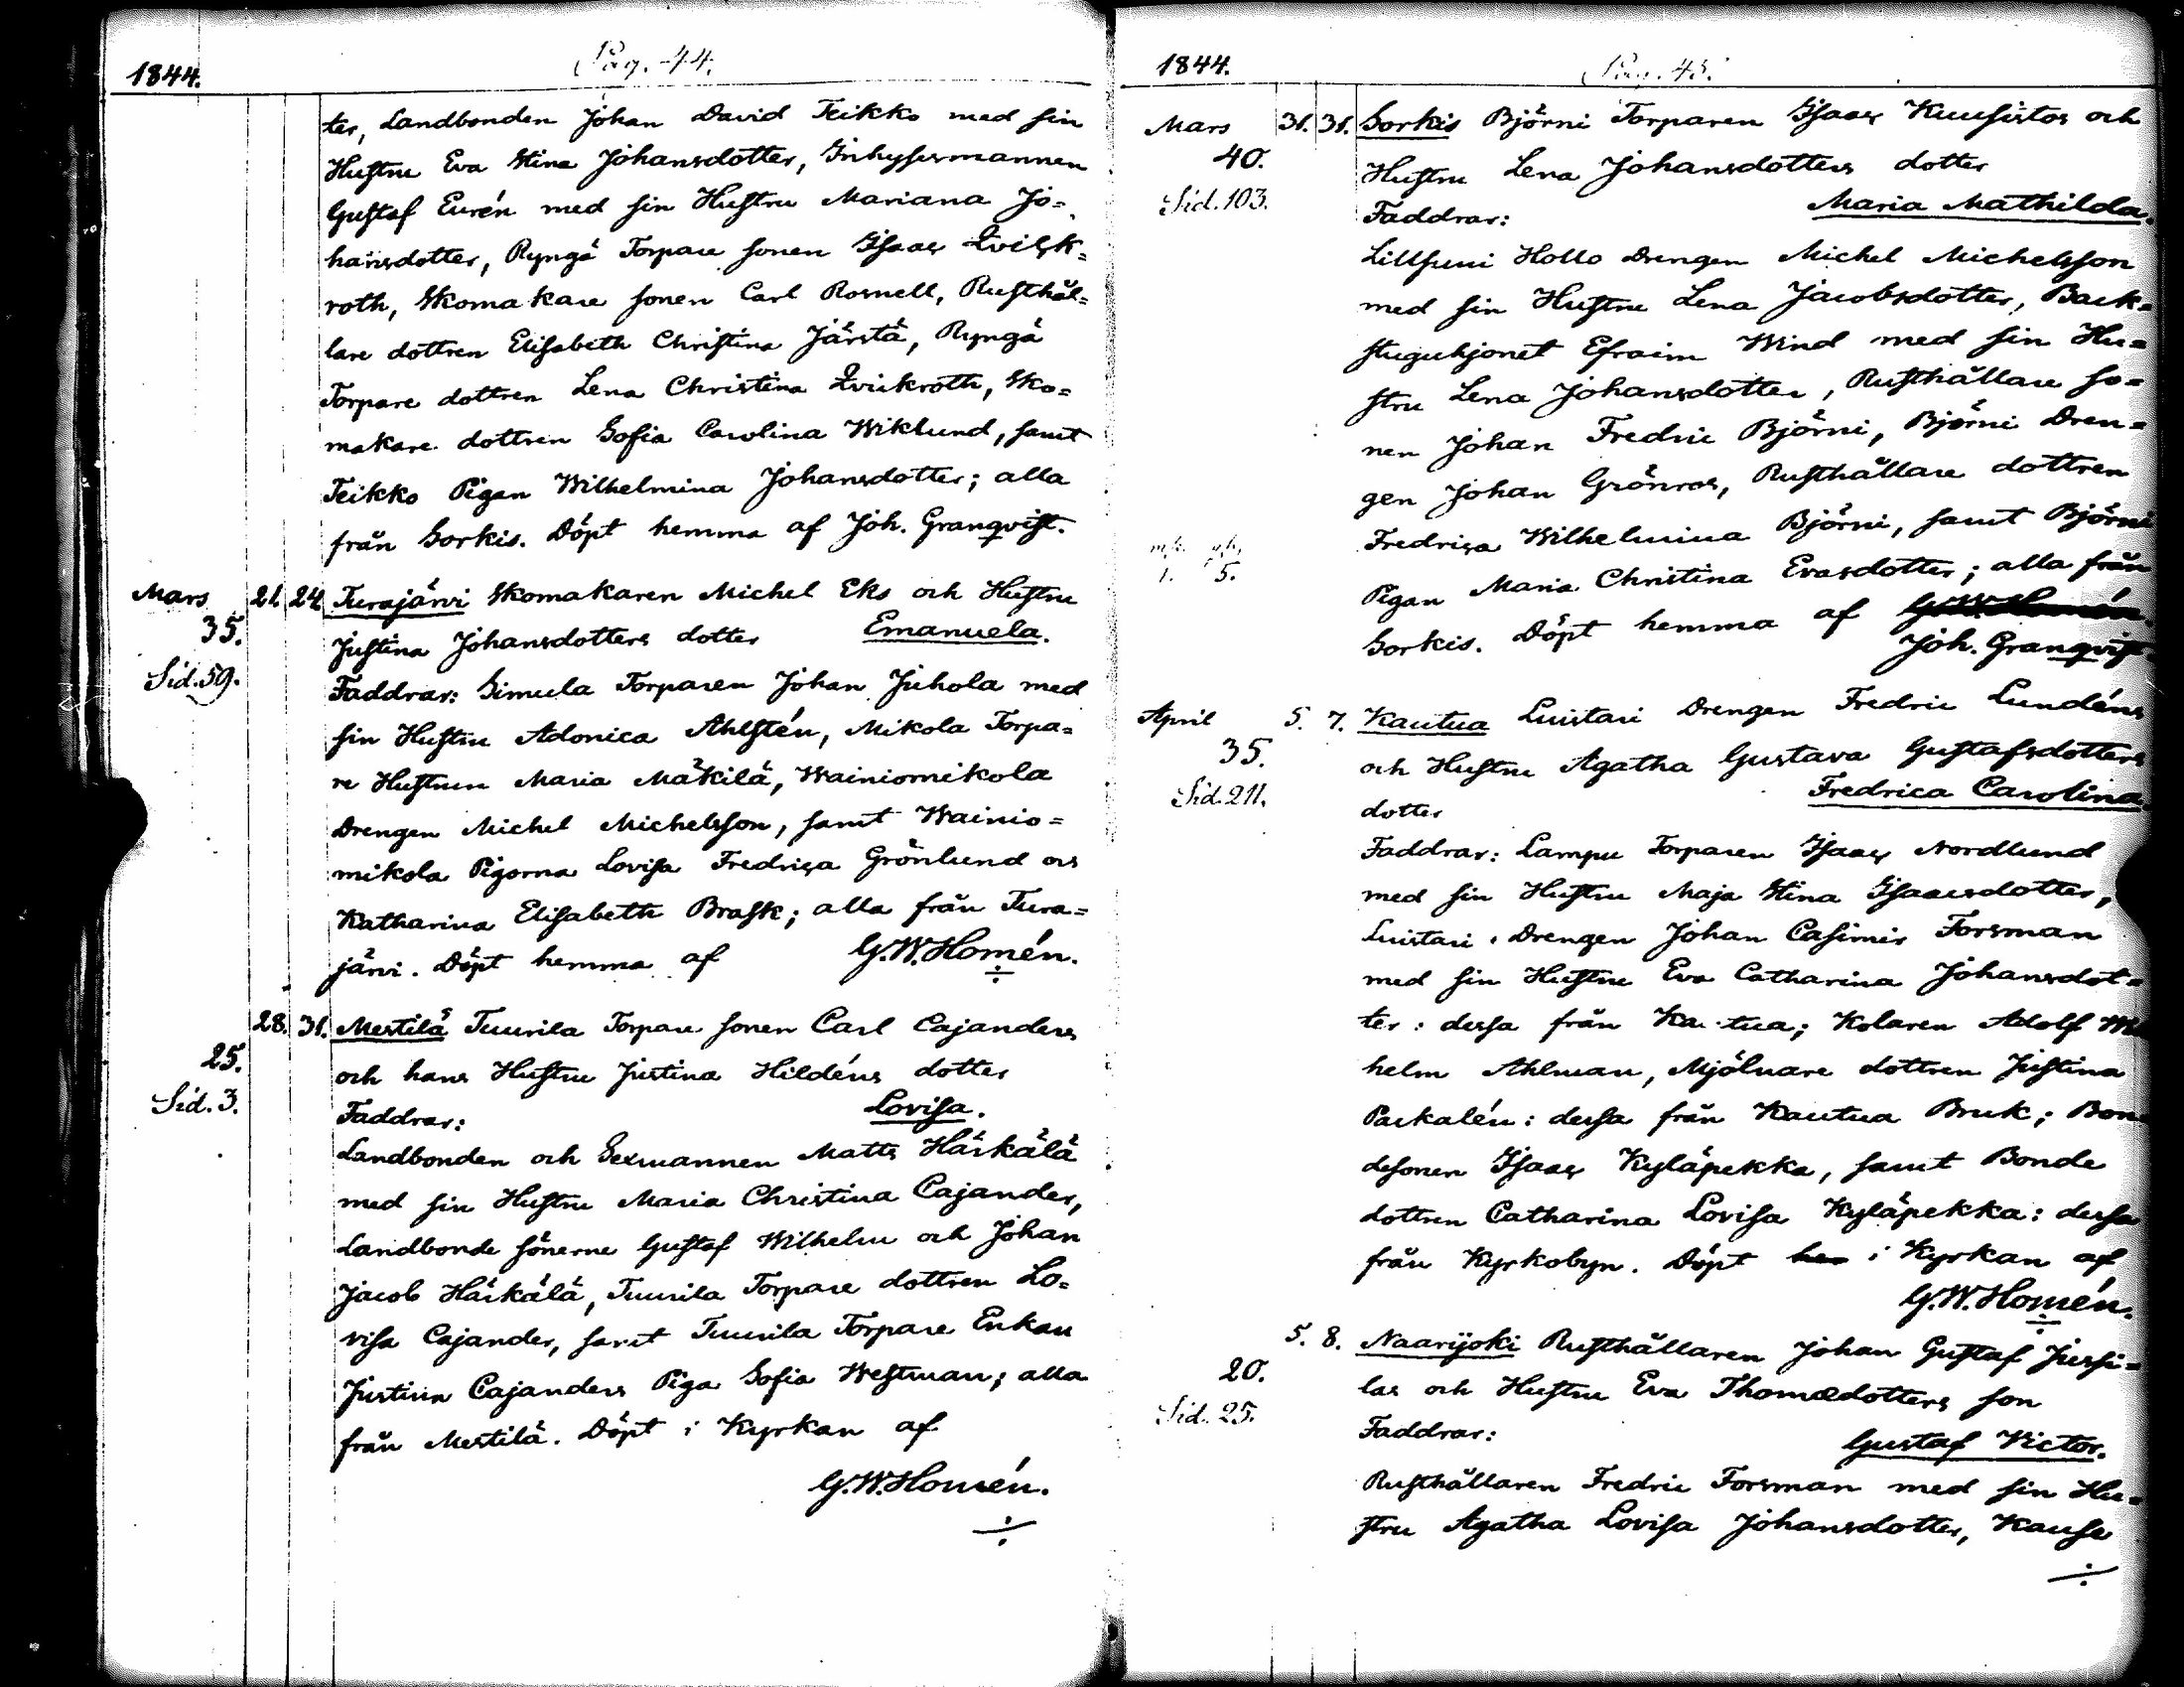 1844.
Pag. 44.
ter, Landbonden Johan David Teikko med sin
Hustru Eva Stina Johansdotter, Inhysesmannen
Gustaf Eurén med sin Hustru Mariana Jo=
hansdotter, Ryngä Torpare sonen Isaac Qvick=
roth, Skomakare sonen Carl Rosnell, Rusthål=
lare dottren Elisabeth Christina Järstä, Ryngä
Torpare dottren Lena Christina Qvickroth, Sko=
makare dottren Sofia Carolina Wiklund, samt
Teikko Pigan Wilhelmina Johansdotter; alla
från Sorkis. Döpt hemma af Joh. Granqvist.
Mars 21. 24. Turajärvi Skomakaren Michel Eks och Hustru
35. Justina Johansdotters dotter Emanuela.
Sid. 59. Faddrar: Simula Torparen Johan Juhola med
sin Hustru Adonica Ahlstén, Mikola Torpa=
re Hustrun Maria Mäkilä, Wainiomikola
Drengen Michel Michelsson, samt Wainio=
mikola Pigorna Lovisa Fredrica Grönlund och
Katharina Elisabeth Brask; alla från Tura=
järvi. Döpt hemma af G.W. Homén.
28. 31. Mestilä Tuurila Torpare sonen Carl Cajanders
25. och hans Hustru Justina Hildéns dotter
Sid. 3. Faddrar: Lovisa.
Landbonden och Sexmannen Matts Härkälä
med sin Hustru Maria Christina Cajander,
Landbonde sönerne Gustaf Wilhelm och Johan
Jacob Härkälä, Tuurila Torpare dottren Lo=
visa Cajander, samt Tuurila Torpare Enkan
Justina Cajanders Piga Sofia Westman; alla
från Mestilä. Döpt i Kyrkan af
G.W. Homén.
1844.
Pag. 45.
Mars 31. 31. Sorkis Björni Torparen Isaac Kuusistos och
40. Hustru Lena Johansdotters dotter
Sid. 103. Faddrar: Maria Mathilda.
Lillsuni Hollo Drengen Michel Michelsson
med sin Hustru Lena Jacobsdotter, Back=
stuguhjonet Efraim Wind med sin Hu=
stru Lena Johansdotter, Rusthållare so=
nen Johan Fredric Björni, Björni Dren=
gen Johan Grönros, Rusthållare dottren
Fredrica Wilhelmina Björni, samt Björni
Pigan Maria Christina Evasdotter; alla från
1. 5.
Sorkis. Döpt hemma af G.W. Homén.
Joh. Granqvist.
April 5. 7. Kautua Luistari Drengen Fredric Lundéns
35. och Hustru Agatha Gustava Gustafsdotters
Sid. 211. dotter Fredrica Carolina.
Faddrar: Lampu Torparen Isaac Nordlund
med sin Hustru Maja Stina Isaacsdotter,
Luistari Drengen Johan Casimir Forsman
med sin Hustru Eva Catharina Johansdot=
ter: dessa från Kautua; Kolaren Adolf Wil
helm Ahlman, Mjölnare dottren Justina
Packalén: dessa från Kautua Bruk; Bon
desonen Isaac Kyläpekka, samt Bonde
dottren Catharina Lovisa Kyläpekka: dessa
från Kyrkobyn. Döpt hem i Kyrkan af
G.W. Homén.
5. 8. Naarijoki Rusthållaren Johan Gustaf Jussi=
20. las och Hustru Eva Thomædotters son
Sid. 25. Faddrar: Gustaf Victor.
Rusthållaren Fredric Forsman med sin Hu=
stru Agatha Lovisa Johansdotter, Kause